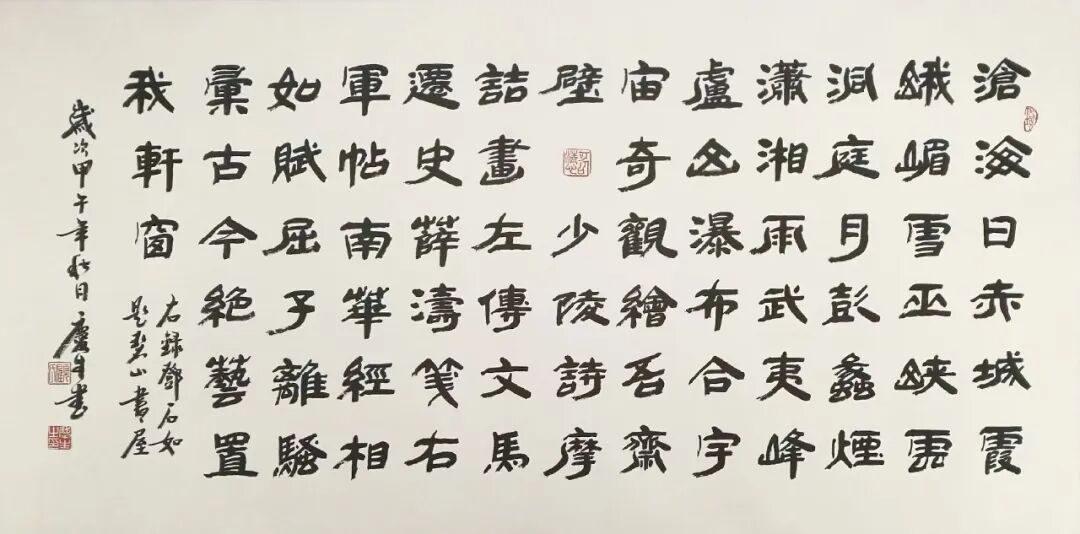 滄海日赤城霞
峨嵋雪巫峽雲
洞庭月彭蠡煙
瀟湘雨武夷峰
廬山瀑布合宇
宙奇觀繪吾齋
壁少陵詩摩
詰畫左傳文馬
遷史薛濤箋右
軍帖南華經相
如賦屈子離騷
彙古今絕藝置
我軒窗
右錄鄧石如
題碧山書屋
歲次甲午年秋日慶生書